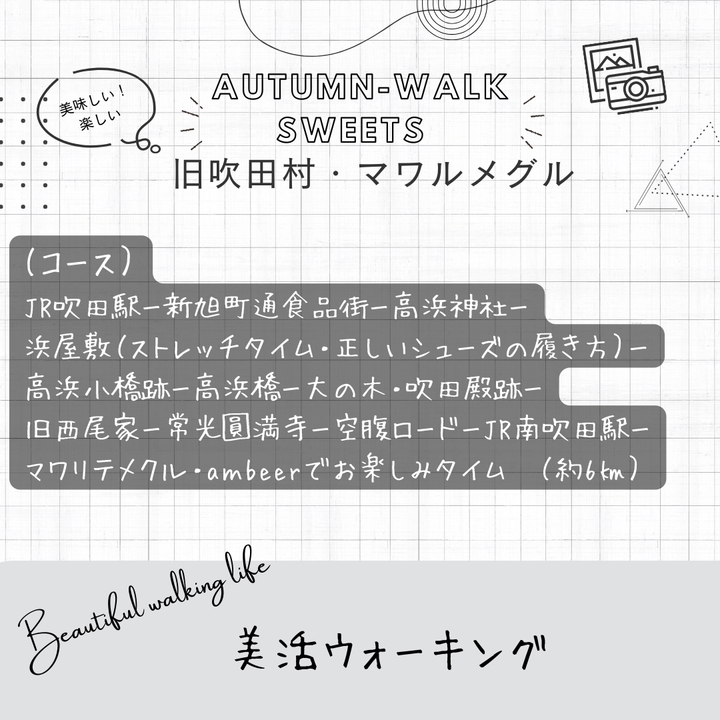 美味しい！
楽しい
AUTUMN-WALK
SWEETS
旧吹田村・マワルメグル
(コース)
JR吹田駅ー新旭町通食品街ー高浜神社ー
浜屋敷(ストレッチタイム・正しいシューズの履き方)ー
高浜小橋跡ー高浜橋ー大の木・吹田殿跡ー
旧西尾家ー常光圓満寺ー空腹ロードーJR南吹田駅ー
マワリテメクル・ambeerでお楽しみタイム　(約6km)
Beautiful walking life
美活ウォーキング